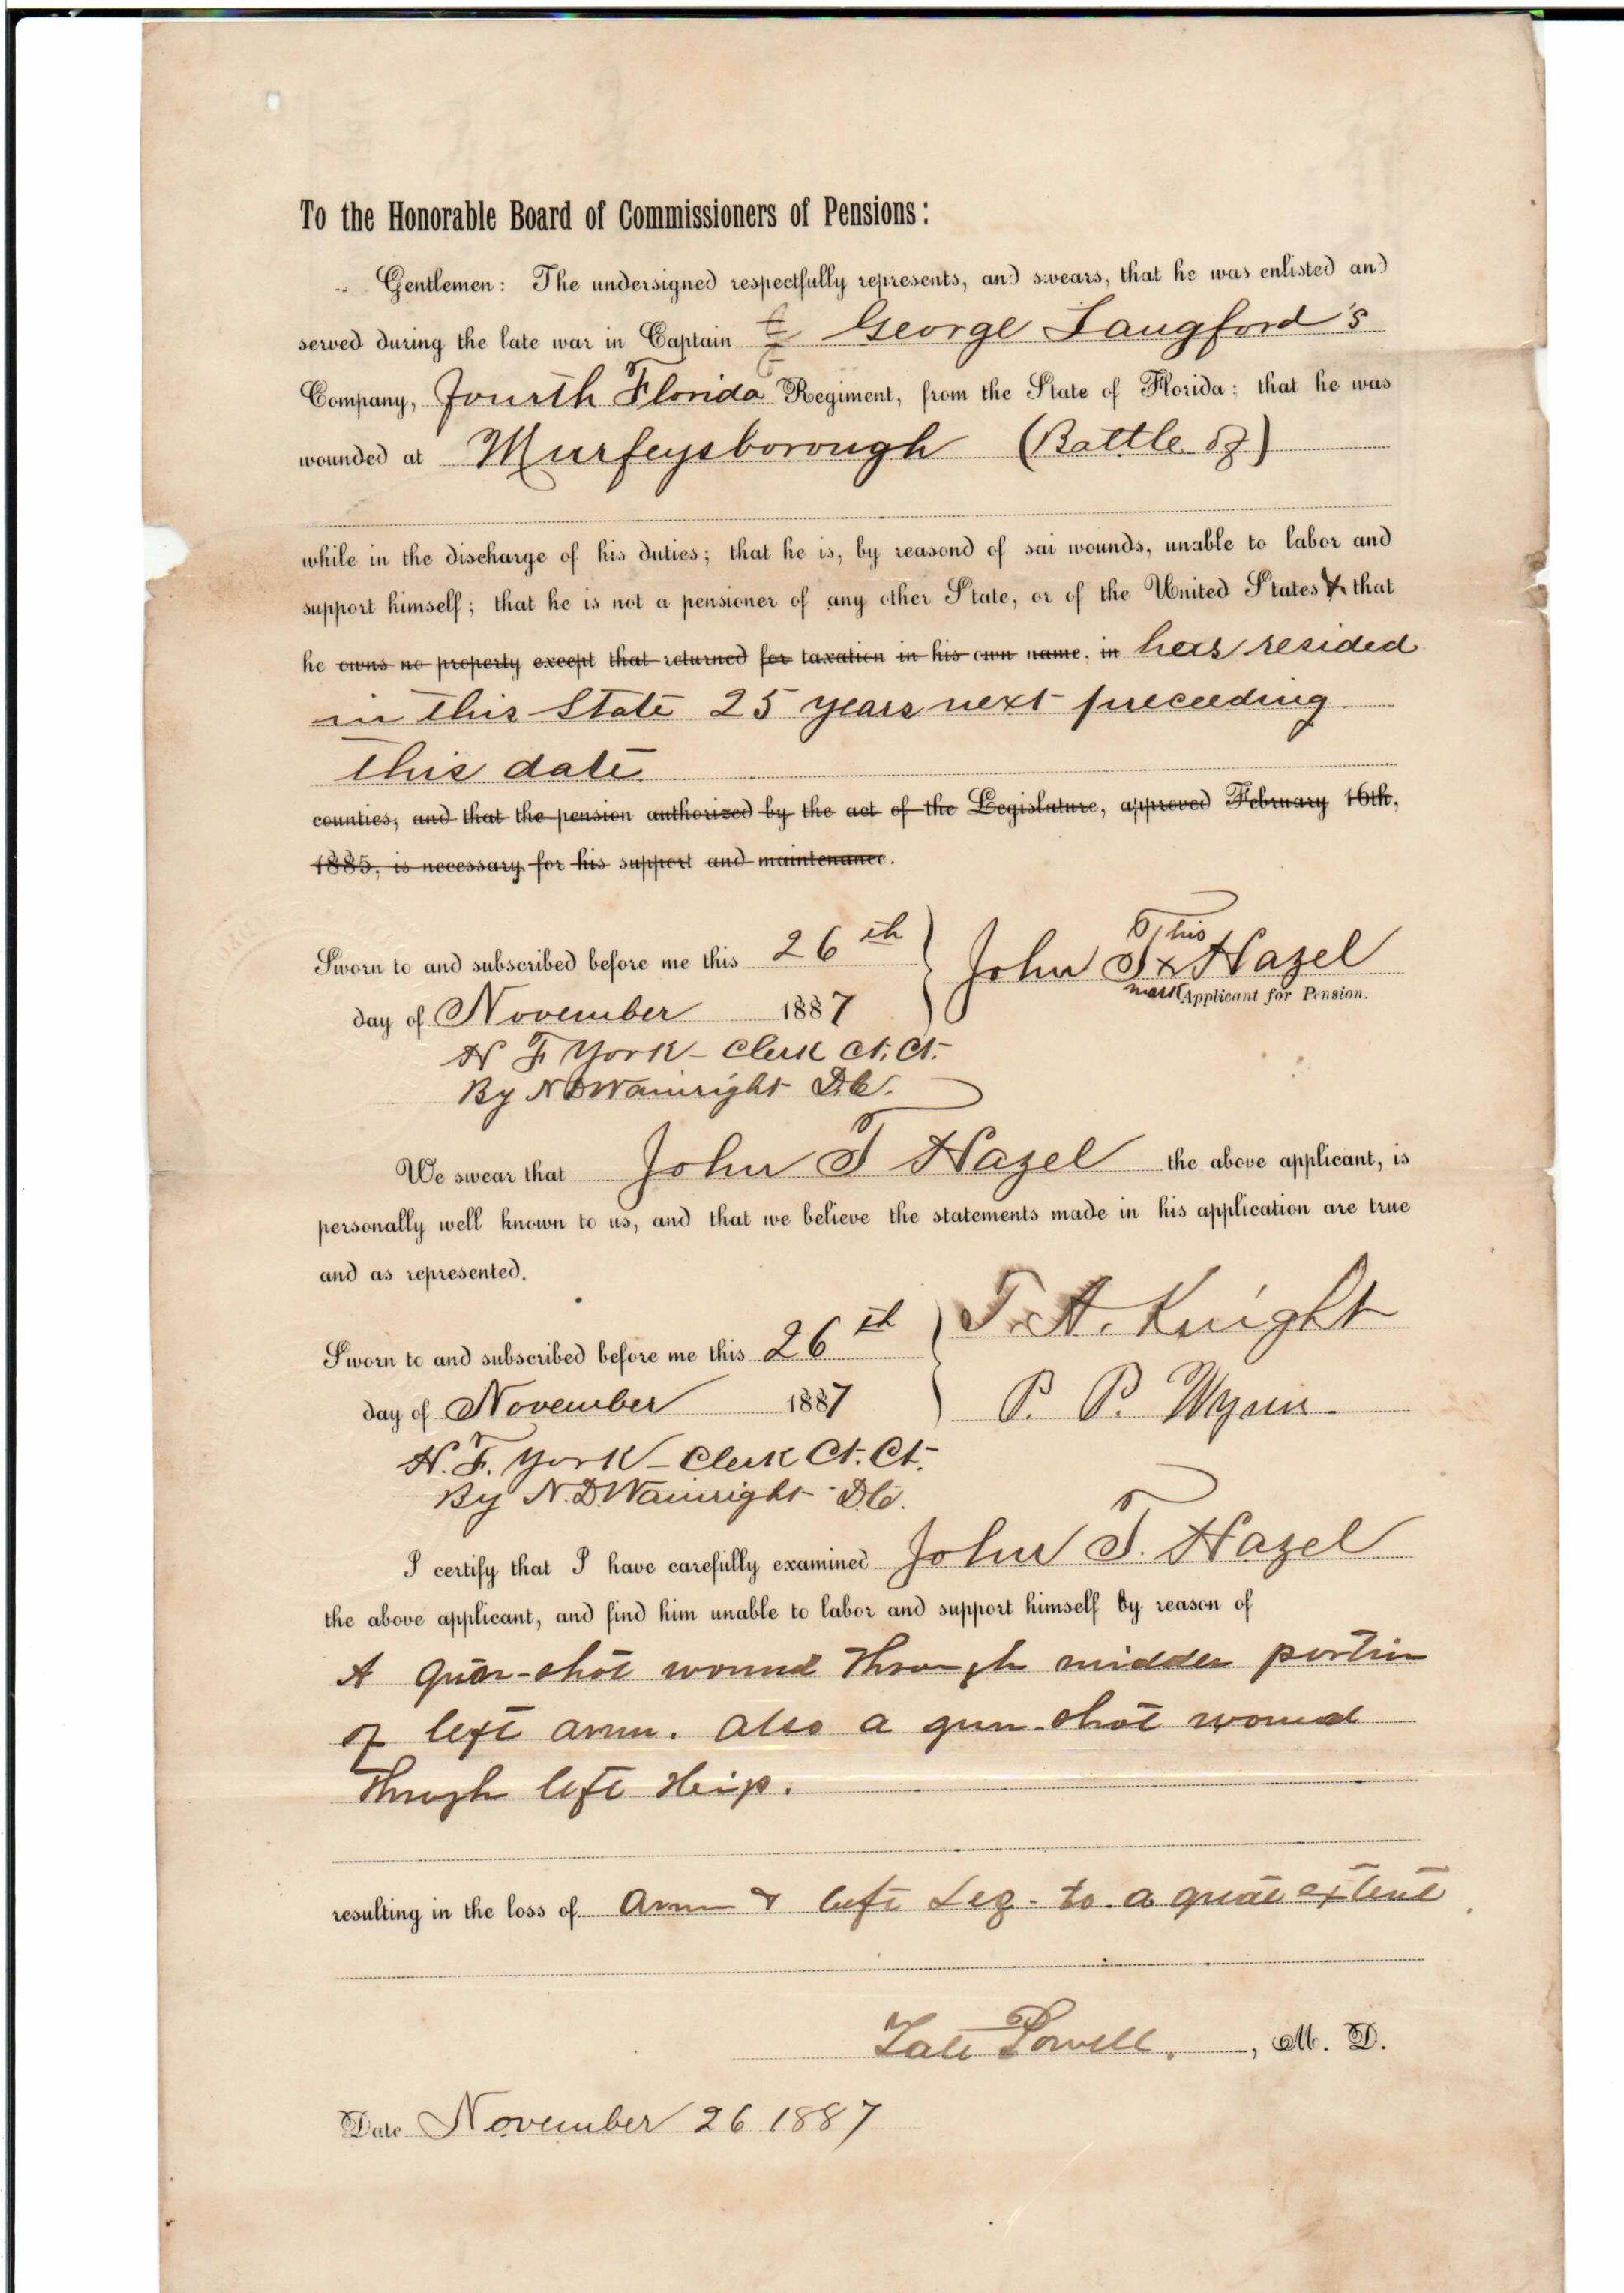 To the Honorable Board of Commissioners of Pensions:
Gentlemen: The undersigned respectfully represents, and swears, that he was enlisted and
served during the late war in Captain George Langford's
Company, Fourth Florida Regiment, from the State of Florida; that he was
wounded at Murfeysborough (Battle of)
while in the discharge of his duties; that he is, by reasond of sai wounds, unable to labor and
support himself; that he is not a pensioner of any other State, or of the United States & that
he owns no property except that returned for taxation in his own name, in has resided
in this State 25 years next preceeding
this date
counties, and that the pension authorized by the act of the Legislature, approved February 16th,
1885, is necessary for his support and maintenance.
Sworn to and subscribed before me this 26th
his
John T x Hazel
mark Applicant for Pension.
day of November 1887
N F York - Clerk Ct. Ct.
By N D Wainright D.C.
We swear that John T Hazel the above applicant, is
personally well known to us, and that we believe the statements made in his application are true
and as represented.
T. A. Knight
Sworn to and subscribed before me this 26th
day of November 1887 P. P. Wynn.
N. F. York - Clerk Ct. Ct.
By N. D. Wainright D.C.
I certify that I have carefully examined John T. Hazel
the above applicant, and find him unable to labor and support himself by reason of
A gun-shot wound through middle portion
of left arm. also a gun-shot wound
through left Hip.
resulting in the loss of arm & left Leg - to a great extent
Tate Powell, M. D.
Date November 26 1887